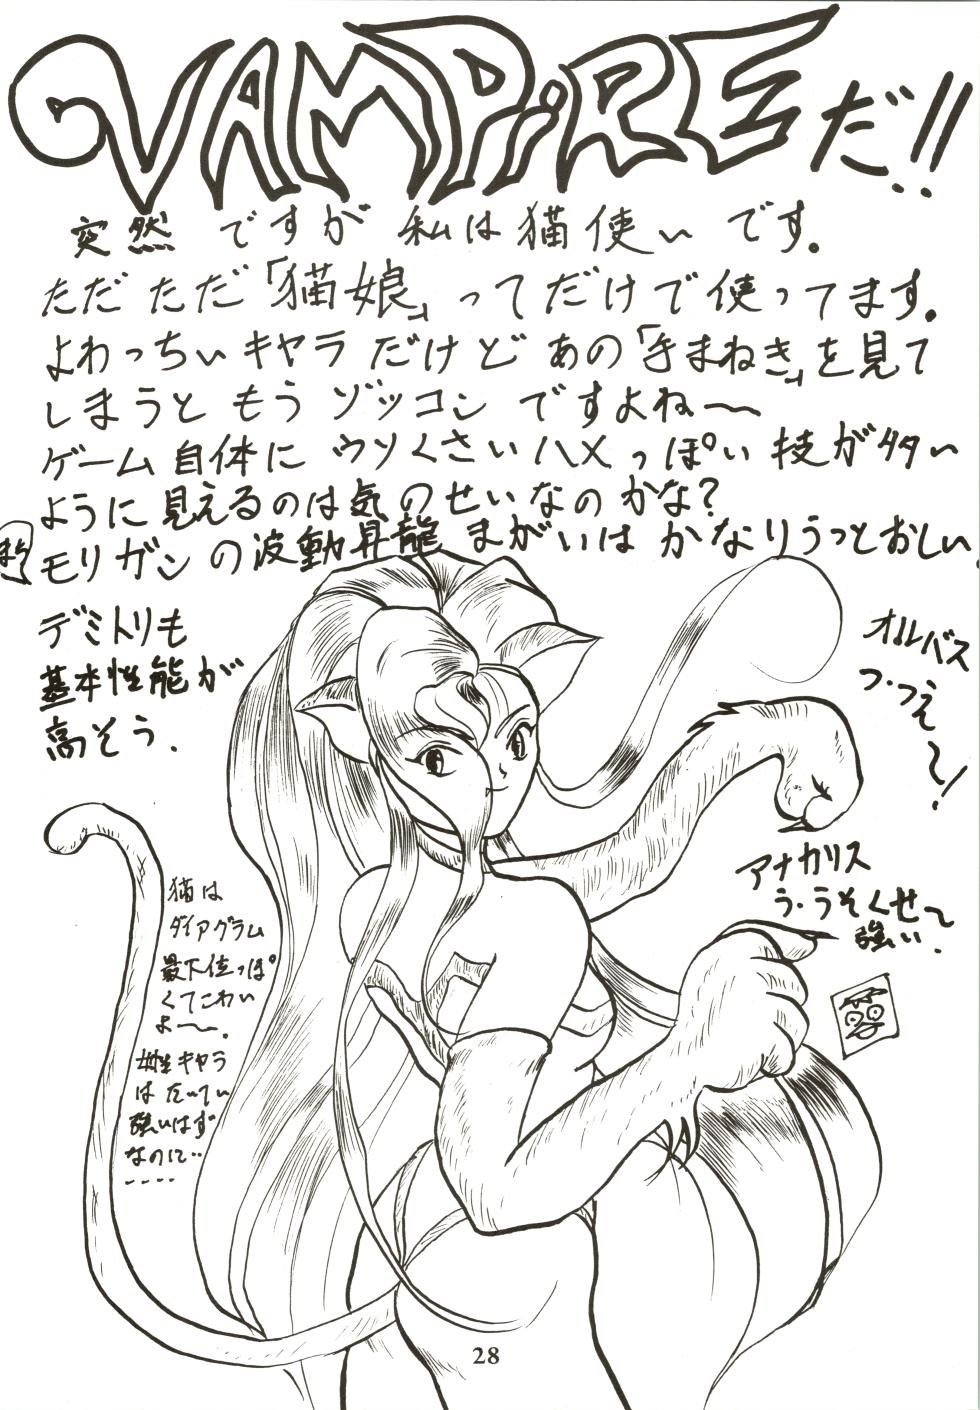 VAMPiREだ!!
突然 ですが 私は猫使いです。
ただただ「猫娘」ってだけで使ってます。
よわっちぃキャラだけど あの「手まねき」を見て
しまうと もう ゾッコン ですよね〜
ゲーム自体に ウソくさいハメっぽい技が多い
ように見えるのは気のせいなのかな?
モリガンの波動昇龍まがいは かなりうっとおしい。
デミトリも
基本性能が
高そう.
オルバス
つ・つえ〜!
アナカリス
う・うそくせ〜
強い.
猫は
ダイアグラム
最下位っぽ
くてこわい
よ〜.
女性キャラ
は たいてい
強いはず
なのに‥
‥‥
28